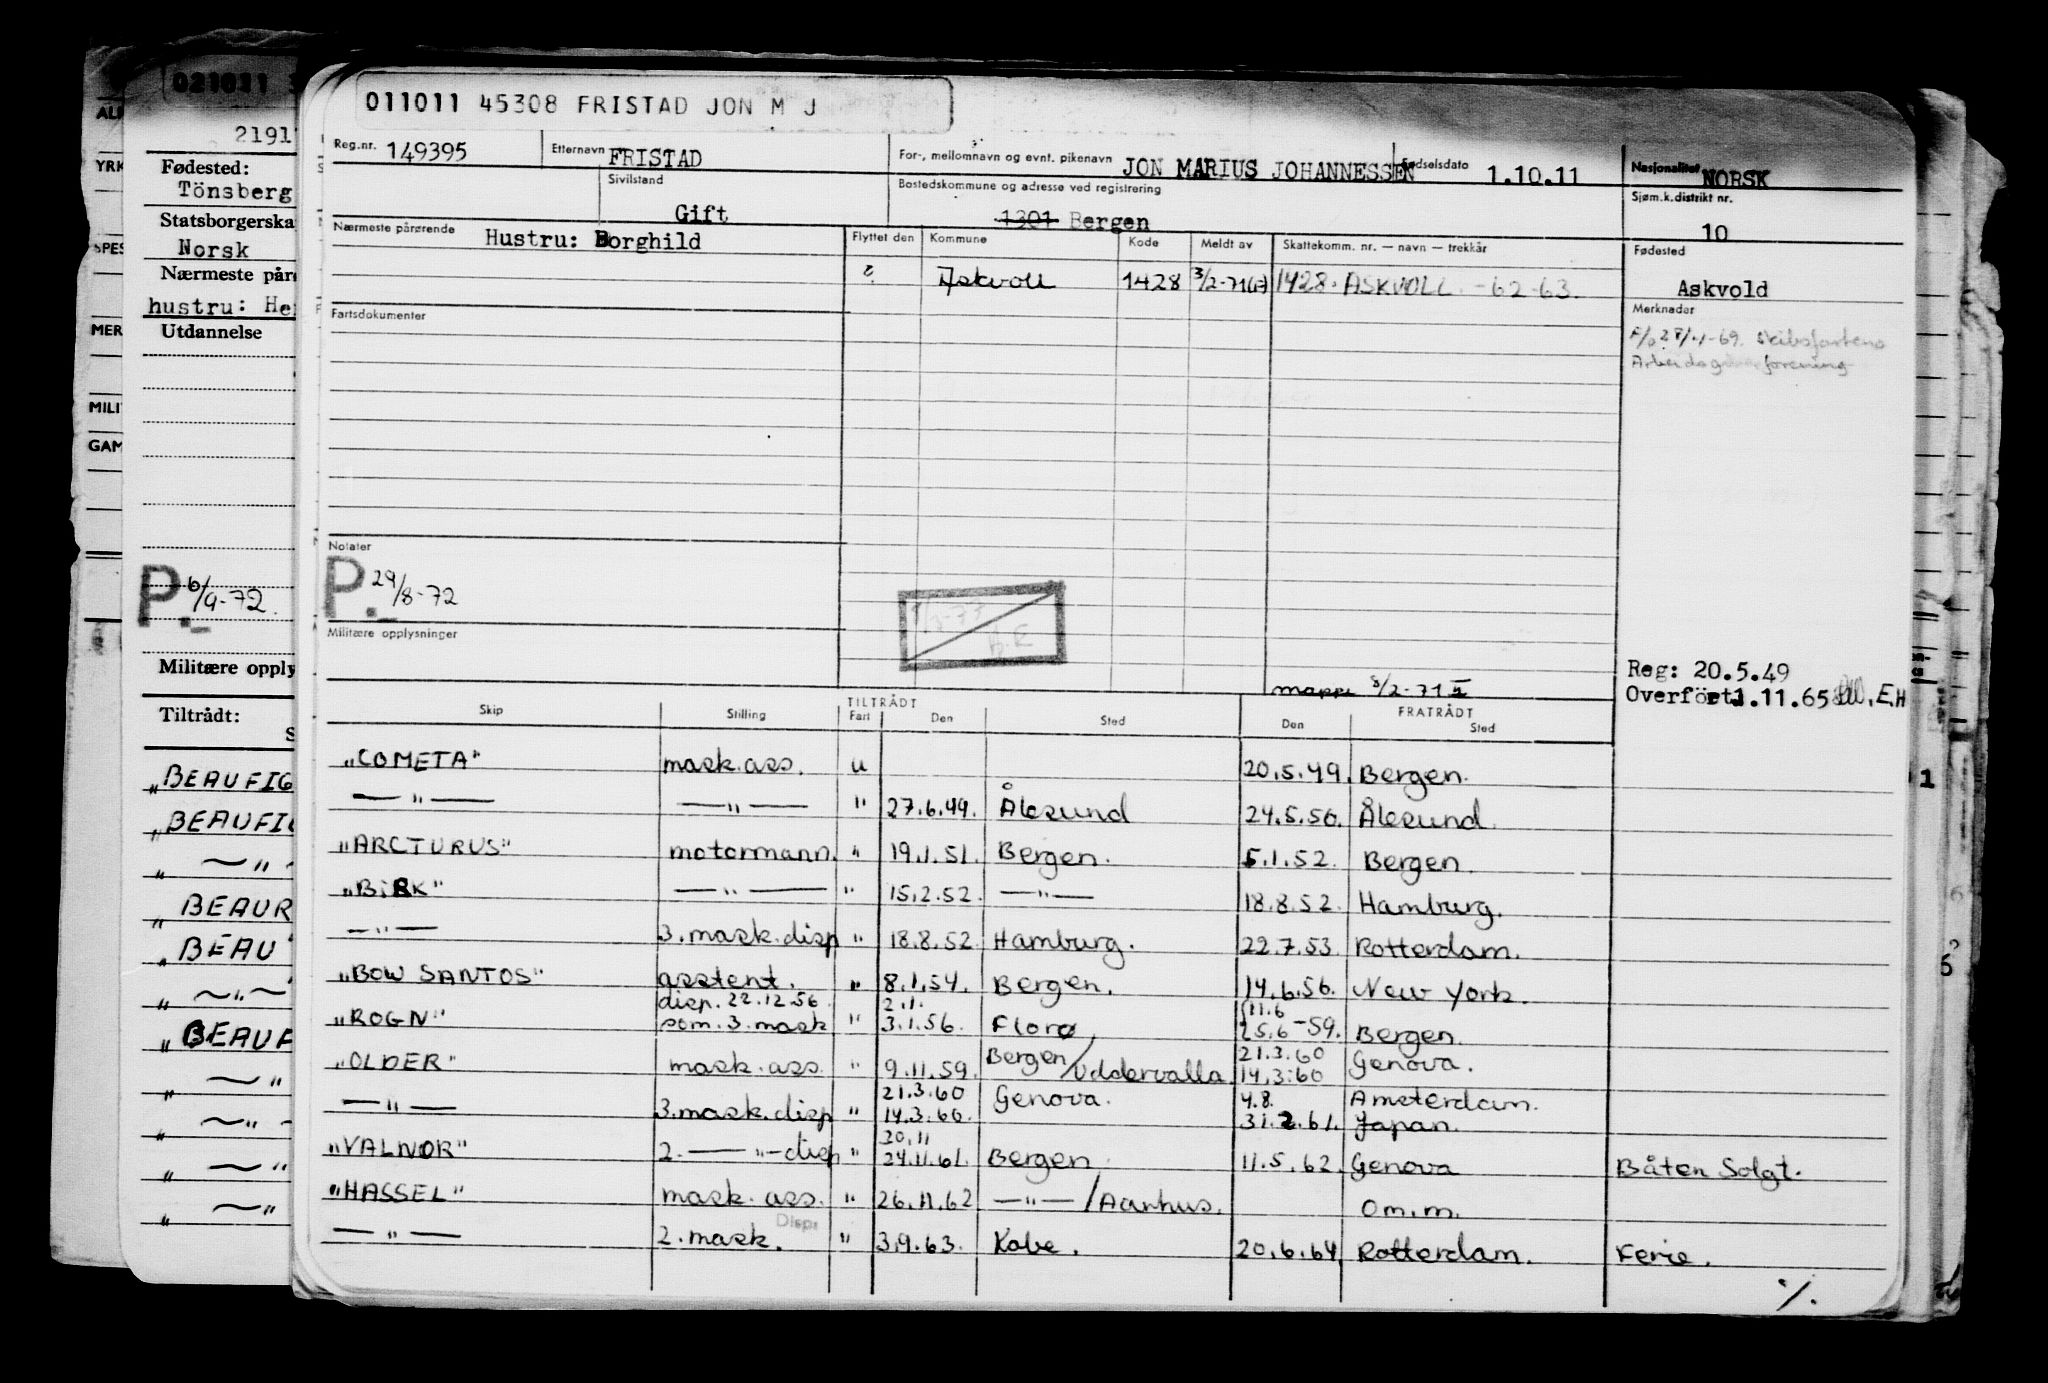 011011 45308 FRISTAD JON M J
Reg.nr. 149395 Etternavn FRISTAD For-, mellomnavn og evnt. pikenavn JON MARIUS JOHANNESSEN Fødselsdato 1.10.11 Nasjonalitet NORSK
Sivilstand Gift Bostedskommune og adresse ved registrering 1301 Bergen Sjøm.k.distrikt nr. 10
Nærmeste pårørende Hustru: Borghild Flyttet den Kommune Kode Meldt av Skattekomm. nr. — navn — trekkår Fødested
? Askvoll 1428 3/2-71 1428. ASKVOLL. -62-63. Askvold
Fartsdokumenter Merknader
-69. Skibsfartens
Arbeidsgiverforening
Notater
P. 29/8-72
Militære opplysninger
mappe 8/2-71
Reg: 20.5.49
Overført 1.11.65 E.H
TILTRÅDT FRATRÅDT
Skip Stilling Fart Den Sted Den Sted
"COMETA" mask.ass. u 20.5.49. Bergen.
— " — — " — " 27.6.49. Ålesund 24.5.50. Ålesund.
"ARCTURUS" motormann. " 19.1.51. Bergen. 5.1.52. Bergen.
"BIRK" — " — " 15.2.52. — " — 18.8.52. Hamburg.
— " — 3.mask.disp " 18.8.52. Hamburg. 22.7.53. Rotterdam.
"BOW SANTOS" asstent. " 8.1.54. Bergen. 14.6.56. New York.
disp. 22.12.56. 2.1. 11.6
"ROGN" som. 3. mask " 3.1.56. Florø 25.6-59. Bergen.
"OLDER" mask.ass. " 9.11.59. Bergen/Uddervalla 21.3.60 14.3.60 Genova.
— " — 3.mask.disp " 21.3.60 14.3.60. Genova. 4.8. Amsterdam.
31.2.61. Japan.
"VALNOR" 2. — " — disp " 20.11 24.11.61. Bergen. 11.5.62. Genova Båten Solgt.
"HASSEL" mask. ass. " 26.11.62 — " — /Aarhus. Om.m.
— " — 2.mask. Disp: " 3.9.63. Kobe. 20.6.64. Rotterdam. Ferie.
./.
021011
2191
Fødested:
Tönsberg
Statsborgerska
Norsk
Nærmeste pårø
hustru: He
Utdannelse
P. 6/9-72.
Militære opply
Tiltrådt:
S
"BEAUFIG
"BEAUFIG
" — " —
"BEAUR
"BEAU
" — " —
"BEAUF
" — "
" — " —
" — "
" — "
YRK
SPES
MER
MILI
GAM